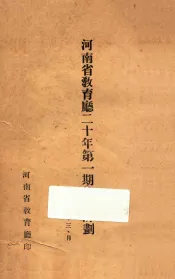 河南省教育廳二十年第一期 劃
三·月
河南省教育廳印